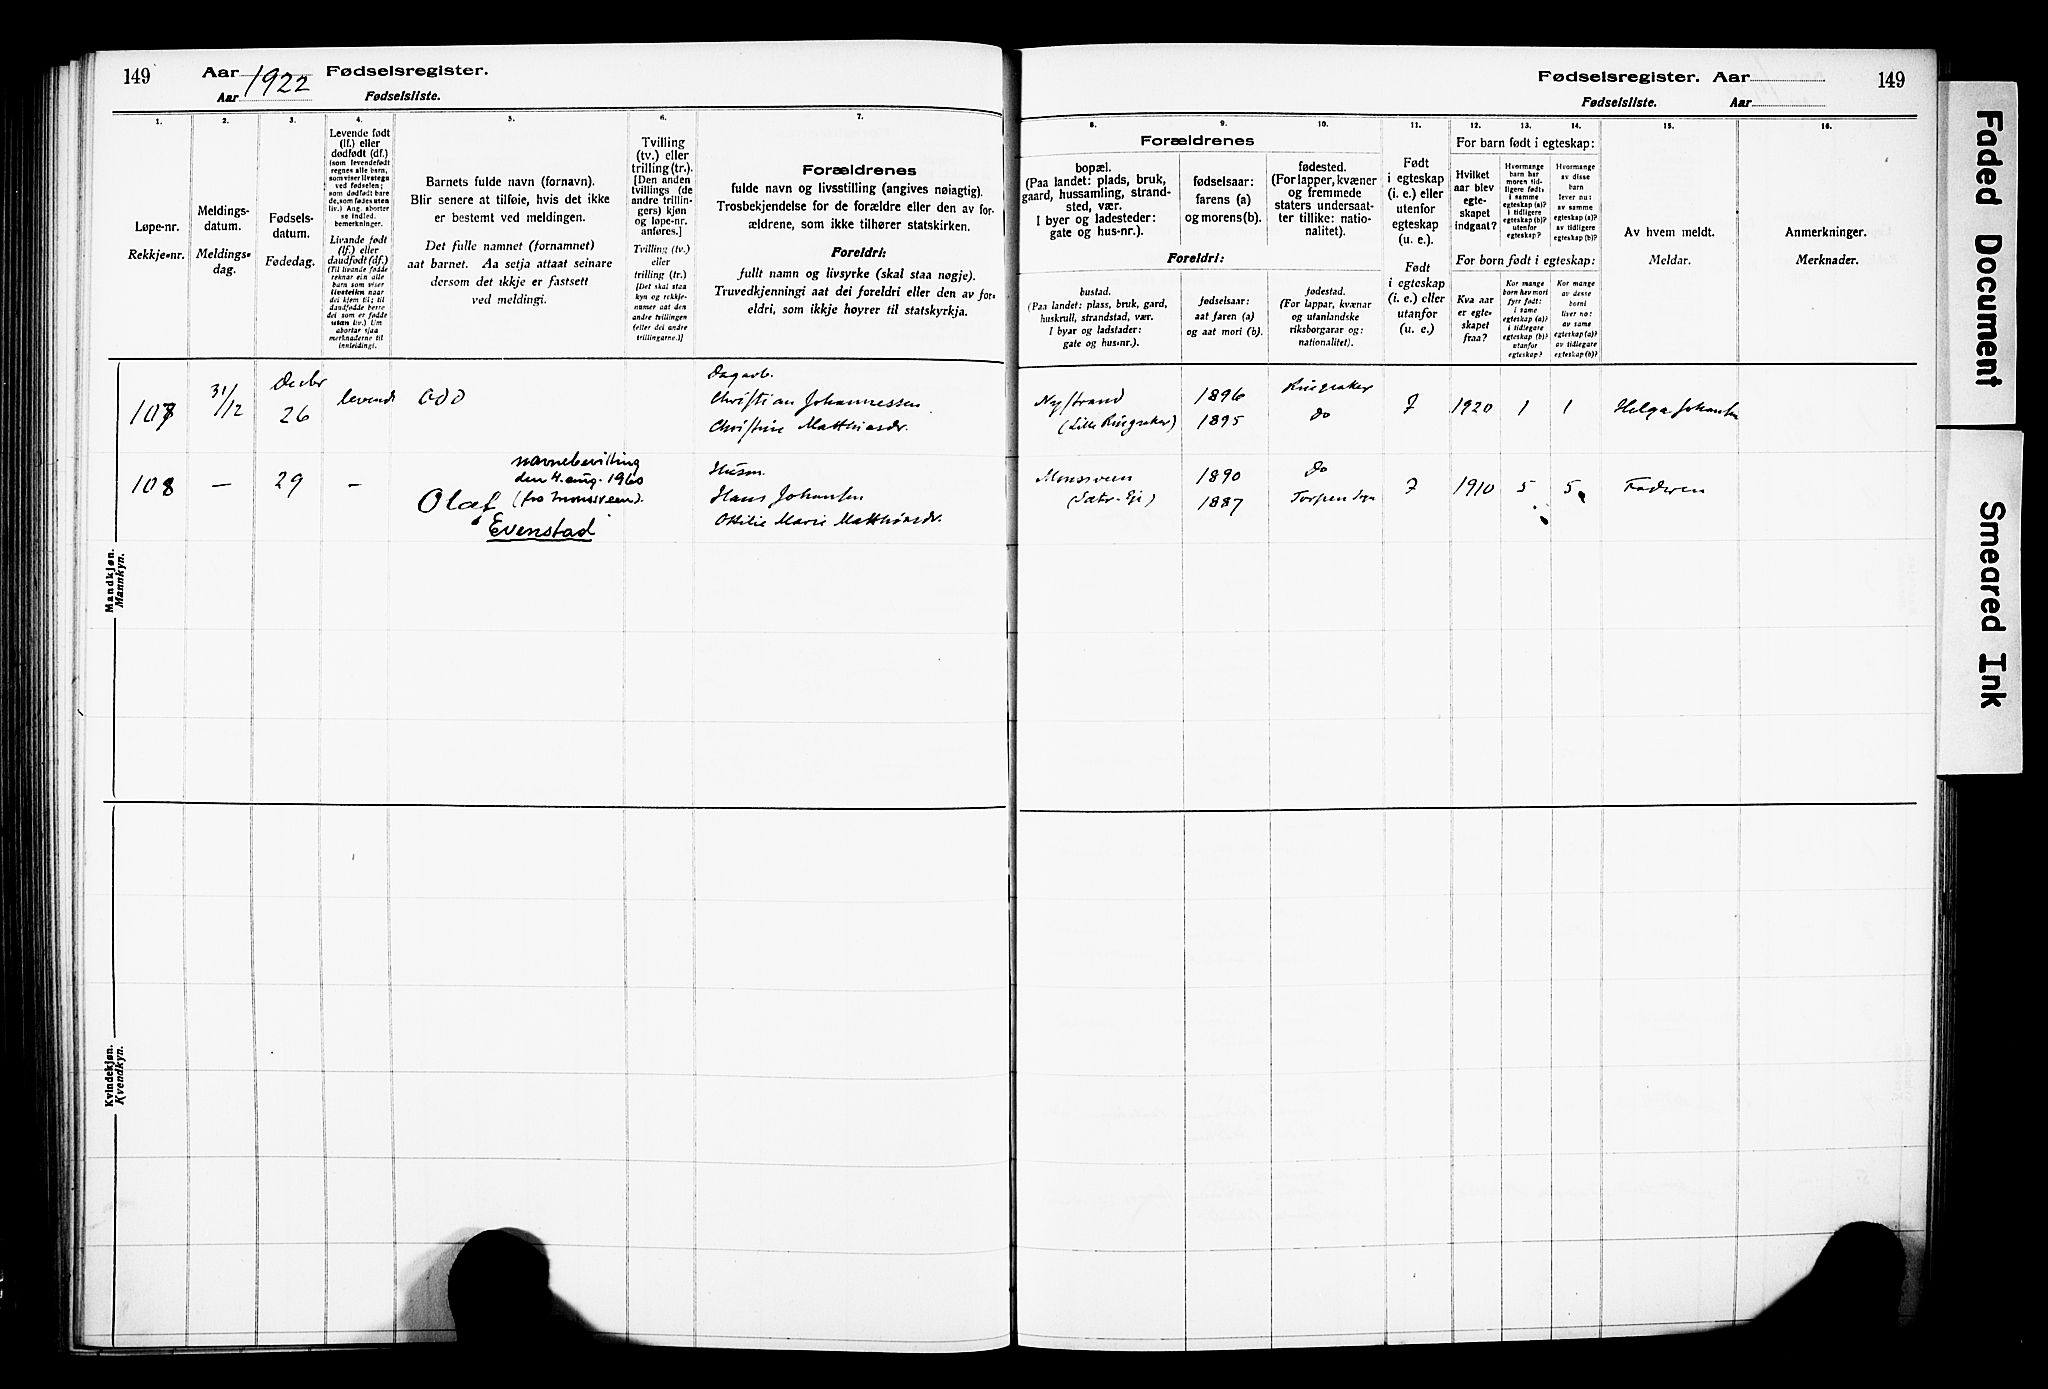 149
Aar 1922 Fødselsregister.
Aar Fødselsliste.
1.
Løpe-nr.
Rekkje-nr.
2.
Meldings-
datum.
Meldings-
dag.
3.
Fødsels-
datum.
Fødedag.
4.
Levende født
(lf.) eller
dødfødt (df.)
(som levendefødt
regnes alle barn,
som viser livstegn
ved fødselen;
som dødfødt bare
de, som fødes uten
liv.) Ang. aborter
se indled.
bemerkninger.
Livande født
(lf.) eller
daudfødt (df.)
(Til livande fødde
reknar ein alle
barn som viser
livsteikn naar
dei kjem til; til
daudfødde berre
dei som er fødde
utan liv.) Um
abortar sjaa
merknaderne til
innleidingi.
5.
Barnets fulde navn (fornavn).
Blir senere at tilføie, hvis det ikke
er bestemt ved meldingen.
Det fulle namnet (fornamnet)
aat barnet. Aa setja attaat seinare
dersom det ikkje er fastsett
ved meldingi.
6.
Tvilling
(tv.) eller
trilling (tr.).
[Den anden
tvillings (de
andre trillin-
gers) kjøn
og løpe-nr.
anføres.]
Tvilling (tv.)
eller
trilling (tr.)
[Det skal staa
kyn og rekkje-
numer aat den
andre tvillingen
(eller dei andre
trillingarne.)]
7.
Forældrenes
fulde navn og livsstilling (angives nøiagtig).
Trosbekjendelse for de forældre eller den av for-
ældrene, som ikke tilhører statskirken.
Foreldri:
fullt namn og livsyrke (skal staa nøgje).
Truvedkjenningi aat dei foreldri eller den av for-
eldri, som ikkje høyrer til statskyrkja.
Mandkjøn.
Mannkyn.
107 31/12 Decbr 26 levende Odd
Dagarb.
Christian Johannessen
Christine Matthiasdr.
108 — 29 —
navnebevilling
den 4. aug. 1960
(fra Monsveen).
Olaf
Evenstad
Husm.
Hans Johansen
Ottilie Marie Matthiasdr.
Kvindekjøn.
Kvendkyn.
Fødselsregister. Aar
149
Fødselsliste. Aar
8.
9.
10.
Forældrenes
bopæl.
(Paa landet: plads, bruk,
gaard, hussamling, strand-
sted, vær.
I byer og ladesteder:
gate og hus-nr.).
fødselsaar:
farens (a)
og morens (b).
fødested.
(For lapper, kvæner
og fremmede
staters undersaat-
ter tillike: natio-
nalitet).
Foreldri:
bustad.
(Paa landet: plass, bruk, gard,
huskrull, strandstad, vær.
I byar og ladstader:
gate og hus-nr.).
fødselsaar:
aat faren (a)
og aat mori (b).
fødestad.
(For lappar, kvænar
og utanlandske
riksborgarar og:
nationalitet).
11.
Født
i egteskap
(i. e.) eller
utenfor
egteskap
(u. e.).
Født
i egteskap
(i. e.) eller
utanfor
(u. e.)
12.
13.
14.
For barn født i egteskap:
Hvilket
aar blev
egte-
skapet
indgaat?
Hvormange
barn har
moren tid-
ligere født,
i samme
egteskap (a)?
i tidligere
egteskap (b)?
utenfor
egteskap?
Hvormange
av disse
barn
lever nu:
av samme
egteskap (a)?
av tidligere
egteskap (b)?
For born født i egteskap:
Kva aar
er egte-
skapet
fraa?
Kor mange
born hev mori
fyrr født:
i same
egteskap (a)?
i tidlegare
egteskap (b)?
utanfor
egteskap?
Kor mange
av desse
borni
liver no:
av same
egteskap (a)?
av tidlegare
egteskap (b)?
15.
Av hvem meldt.
Meldar.
16.
Anmerkninger.
Merknader.
Nystrand
(Lille Ringsaker)
1896
1895
Ringsaker
do
7 1920 1 1 Helga Johansen
Monsveen
(Sætr. Eje)
1890
1887
do
Torpen
7 1910 5 5 Faderen
Faded Document
Smeared Ink